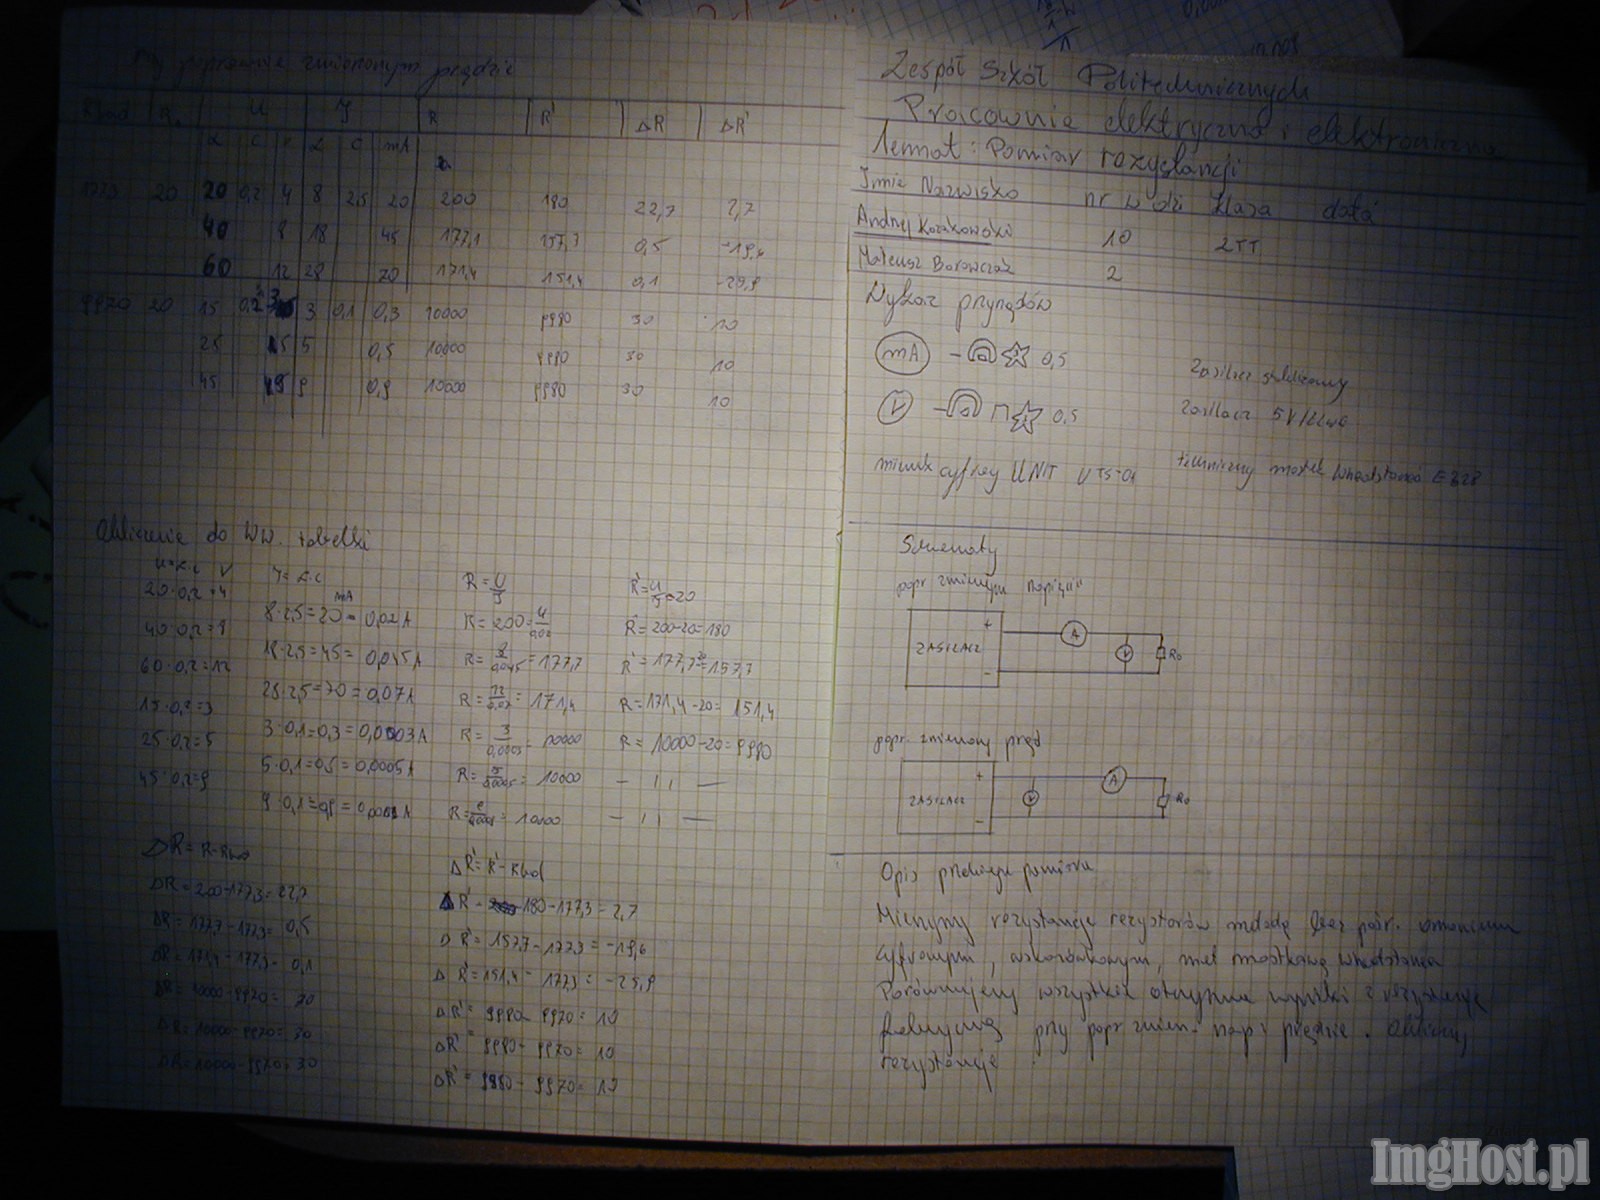 przy poprawnie zmierzonym prądzie
U I R R' ΔR ΔR'
α c V α c mA
20 20 0,2 4 8 2,5 20 200 180 22,7 2,7
40 8 18 45 177,1 157,7 0,5 -19,6
60 12 28 20 171,4 151,4 0,1 -25,9
9970 20 15 0,2 3 3 0,1 0,3 10000 9980 30 10
25 5 5 0,5 10000 9980 30 10
45 9 9 0,9 10000 9980 30 10
Obliczenia do ww. tabelki
V
20·0,2=4
40·0,2=8
60·0,2=12
15·0,2=3
25·0,2=5
45·0,2=9
mA
8·2,5=20= 0,02A
18·2,5=45= 0,045A
28·2,5=70=0,07A
3·0,1=0,3=0,0003A
5·0,1=0,5=0,0005A
9·0,1=0,9=
R=U/I
R=200=4/0,02
R=8/0,045=177,7
R=12/0,07=171,4
R=3/0,0003=10000
R= = 10000
R= = 10000
R'=U/I-20
R'=200-20=180
R'=177,7-20=157,7
R=171,4-20=151,4
R=10000-20=9980
— 11 —
— 11 —
ΔR=R-Rbad
ΔR=200-177,3=22,7
ΔR=177,7-177,3= 0,5
ΔR=171,4-177,3= 0,1
ΔR=10000-9970= 30
ΔR=10000-9970= 30
ΔR=10000-9970=30
ΔR'=R'-Rbad
ΔR'= 180-177,3=2,7
ΔR'=157,7-177,3=-19,6
ΔR'=151,4-177,3=-25,9
ΔR'=9980-9970=10
ΔR'=9980-9970=10
ΔR'=9980-9970=10
Zespół Szkół Politechnicznych
Pracownia elektryczna i elektroniczna
Temat: Pomiar rezystancji
Imie Nazwisko nr w dzi klasa data
Andrzej Kozakowski 10 2TT
Mateusz Borowczak 2
Wykaz przyrządów
mA 0,5
V 0,5
miernik cyfrowy UNIT
Zasilacz
Zasilacz 5V
techniczny mostek
Schematy
popr zmierzonym napięciu
ZASILACZ + - A V R0
popr. zmierzony prąd
ZASILACZ + - V A R0
Opis przebiegu pomiaru
Mierzymy rezystancje rezystorów metodą bez pośr. omomierzem
cyfrowym, wskazówkowym, met mostkową Wheatstona
Porównujemy wszystkie otrzymane wyniki z rezystancją
przy popr zmierz. nap i prądzie. Obliczamy
rezystancje.
ImgHost.pl